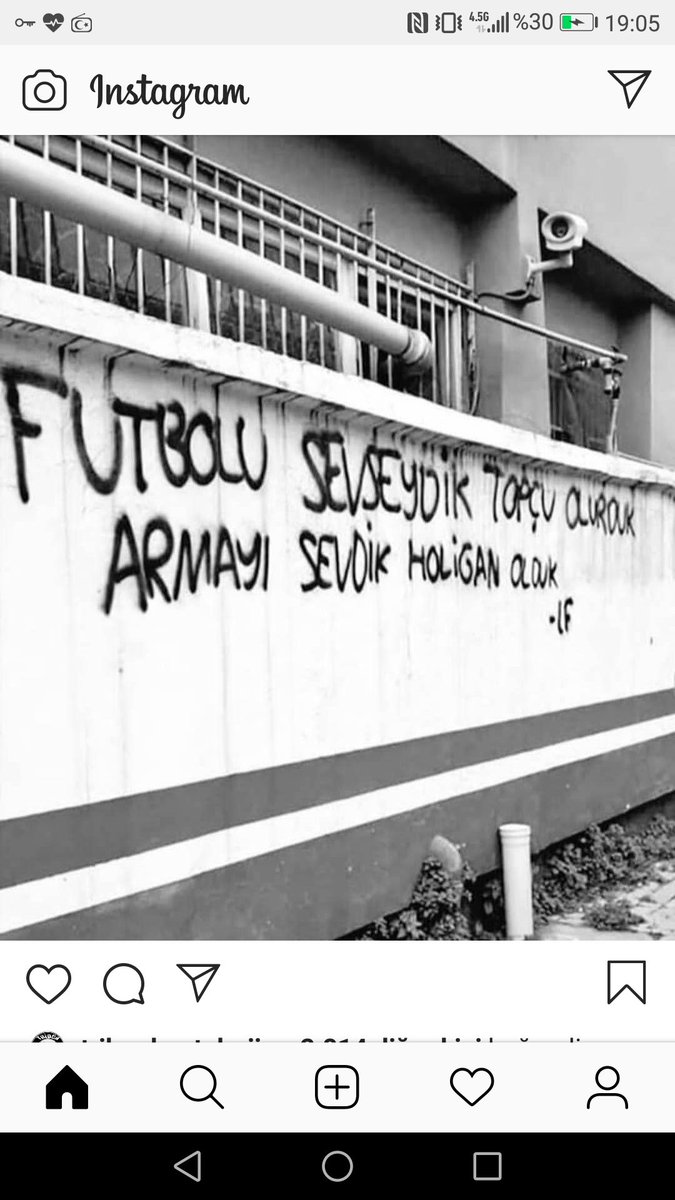 4.5G %30 19:05
Instagram
FUTBOLU SEVSEYDİK TOPÇU OLURDUK
ARMAYI SEVDİK HOLİGAN OLDUK
-LF